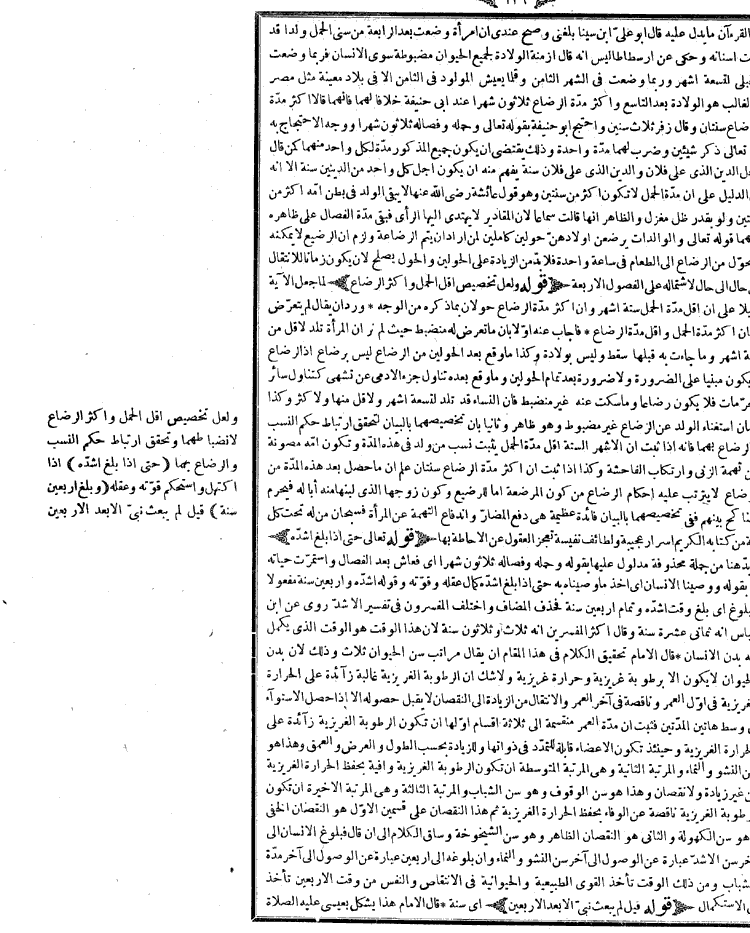 القرءآن مايدل عليه قال ابو على ابن سينا بلغنى وصح عندى ان امرأة وضعت بعد الرابعة من سنى الحمل ولدا قد
ت اسنانه وحكى عن ارسطاطاليس انه قال ازمنة الولادة لجميع الحيوان مضبوطة سوى الانسان فربما وضعت
بلى لتسعة اشهر وربما وضعت فى الشهر الثامن وقلما يعيش المولود فى الثامن الا فى بلاد معينة مثل مصر
لغالب هو الولادة بعد التاسع واكثر مدة الرضاع ثلاثون شهرا عند ابى حنيفة خلافا لهما فانهما قالا اكثر مدة
ضاع سنتان وقال زفر ثلاث سنين واحتج ابو حنيفة بقوله تعالى وحمله وفصاله ثلاثون شهرا ووجه الاحتجاج به
تعالى ذكر شيئين وضرب لهما مدة واحدة وذلك يقتضى ان يكون جميع المذكور مدة لكل واحد منهما كمن قال
جل الدين الذى على فلان والدين الذى على فلان سنة يفهم منه ان يكون اجل كل واحد من الدينين سنة الا انه
الدليل على ان مدة الحمل لا تكون اكثر من سنتين وهو قول عائشة رضى الله عنها لا يبقى الولد فى بطن امه اكثر من
تين ولو بقدر ظل مغزل والظاهر انها قالت سماعا لان المقادير لا يهتدى اليها الرأى فبقى مدة الفصال على ظاهره
هما قوله تعالى والوالدات يرضعن اولادهن حولين كاملين لمن اراد ان يتم الرضاعة ولزم ان الرضيع لا يمكنه
تحول من الرضاع الى الطعام فى ساعة واحدة فلا بد من الزيادة على الحولين والحول يصلح لان يكون زمانا للانتقال
حال الى حال لاشتماله على الفصول الاربعة ﴿قوله ولعل تخصيص اقل الحمل واكثر الرضاع﴾ لما جعل الآية
يلا على ان اقل مدة الحمل ستة اشهر وان اكثر مدة الرضاع حولان بما ذكره من الوجه * ورد ان يقال لم يتعرض
ان اكثر مدة الحمل واقل مدة الرضاع * فاجاب عنه اولا بان ما تعرض له منضبط حيث لم نر ان المرأة تلد لاقل من
ة اشهر وما جاءت به قبلها سقط وليس بولادة وكذا ما وقع بعد الحولين من الرضاع ليس برضاع اذ الرضاع
يكون مبنيا على الضرورة ولا ضرورة بعد تمام الحولين وما وقع بعده تناول جزء الادمى عن تشهى كتناول سائر
رمات فلا يكون رضاعا وما سكت عنه غير منضبط فان النساء قد تلد لتسعة اشهر ولاقل منها ولاكثر وكذا
مان استغناء الولد عن الرضاع غير مضبوط وهو ظاهر وثانيا بان تخصيصهما بالبيان لتحقق ارتباط حكم النسب
الرضاع بهما فانه اذا ثبت ان الاشهر الستة اقل مدة الحمل يثبت نسب من ولد فى هذه المدة وتكون امه مصونة
ن تهمة الزنى وارتكاب الفاحشة وكذا اذا ثبت ان اكثر مدة الرضاع سنتان علم ان ما حصل بعد هذه المدة من
ضاع لا يترتب عليه احكام الرضاع من كون المرضعة اما للرضيع وكون زوجها الذى لبنها منه ابا له فيحرم
تاكح بينهم ففى تخصيصهما بالبيان فائدة عظيمة هى دفع المضار واندفاع التهمة عن المرأة فسبحان من له تحت كل
ة من كتابه الكريم اسرار عجيبة ولطائف نفيسة فيعجز العقول عن الاحاطة بها ﴿قوله تعالى حتى اذا بلغ اشده﴾
بد هنا من جملة محذوفة مدلول عليها بقوله وحمله وفصاله ثلاثون شهرا اى فعاش بعد الفصال واستمرت حياته
بقوله ووصينا الانسان اى اخذ ما وصيناه به حتى اذا بلغ اشده كمال عقله وقوته وقوله اشده واربعين سنة مفعولا
بلوغ اى بلغ وقت اشده وتمام اربعين سنة فحذف المضاف واختلف المفسرون فى تفسير الاشد روى عن ابن
باس انه ثمانى عشرة سنة وقال اكثر المفسرين انه ثلاث وثلاثون سنة لان هذا الوقت هو الوقت الذى يكمل
ه بدن الانسان * قال الامام تحقيق الكلام فى هذا المقام ان يقال مراتب سن الحيوان ثلاث وذلك لان بدن
لحيوان لا يكون الا برطوبة غريزية وحرارة غريزية ولا شك ان الرطوبة الغريزية غالبة زآئدة على الحرارة
غريزية فى اول العمر وناقصة فى آخر العمر والانتقال من الزيادة الى النقصان لا يقبل حصوله الا اذا حصل الاستوآء
وسط هاتين المدتين فثبت ان مدة العمر منقسمة الى ثلاثة اقسام اولها ان تكون الرطوبة الغريزية زآئدة على
لحرارة الغريزية وحينئذ تكون الاعضاء قابلة للتمدد فى ذواتها وللزيادة بحسب الطول والعرض والعمق وهذا هو
ن النشو والنماء والمرتبة الثانية وهى المرتبة المتوسطة ان تكون الرطوبة الغريزية وافية بحفظ الحرارة الغريزية
ن غير زيادة ولا نقصان وهذا هو سن الوقوف وهو سن الشباب والمرتبة الثالثة وهى المرتبة الاخيرة ان تكون
رطوبة الغريزية ناقصة عن الوفاء بحفظ الحرارة الغريزية ثم هذا النقصان على قسمين الاول هو النقصان الخفى
هو سن الكهولة والثانى هو النقصان الظاهر وهو سن الشيخوخة وساق الكلام الى ان قال فبلوغ الانسان الى
خر سن الاشد عبارة عن الوصول الى آخر سن النشو والنماء وان بلوغه الى اربعين عبارة عن الوصول الى آخر مدة
شباب ومن ذلك الوقت تأخذ القوى الطبيعية والحيوانية فى الانتقاص والنفس من وقت الاربعين تأخذ
ى الاستكمال ﴿قوله قيل لم يبعث نبى الا بعد الاربعين﴾ اى سنة * قال الامام هذا يشكل بعيسى عليه الصلاة
ولعل تخصيص اقل الحمل واكثر الرضاع
لانضباطهما وتحقق ارتباط حكم النسب
والرضاع بهما (حتى اذا بلغ اشده) اذا
اكتهل واستحكم قوته وعقله (وبلغ اربعين
سنة) قيل لم يبعث نبى الا بعد الاربعين